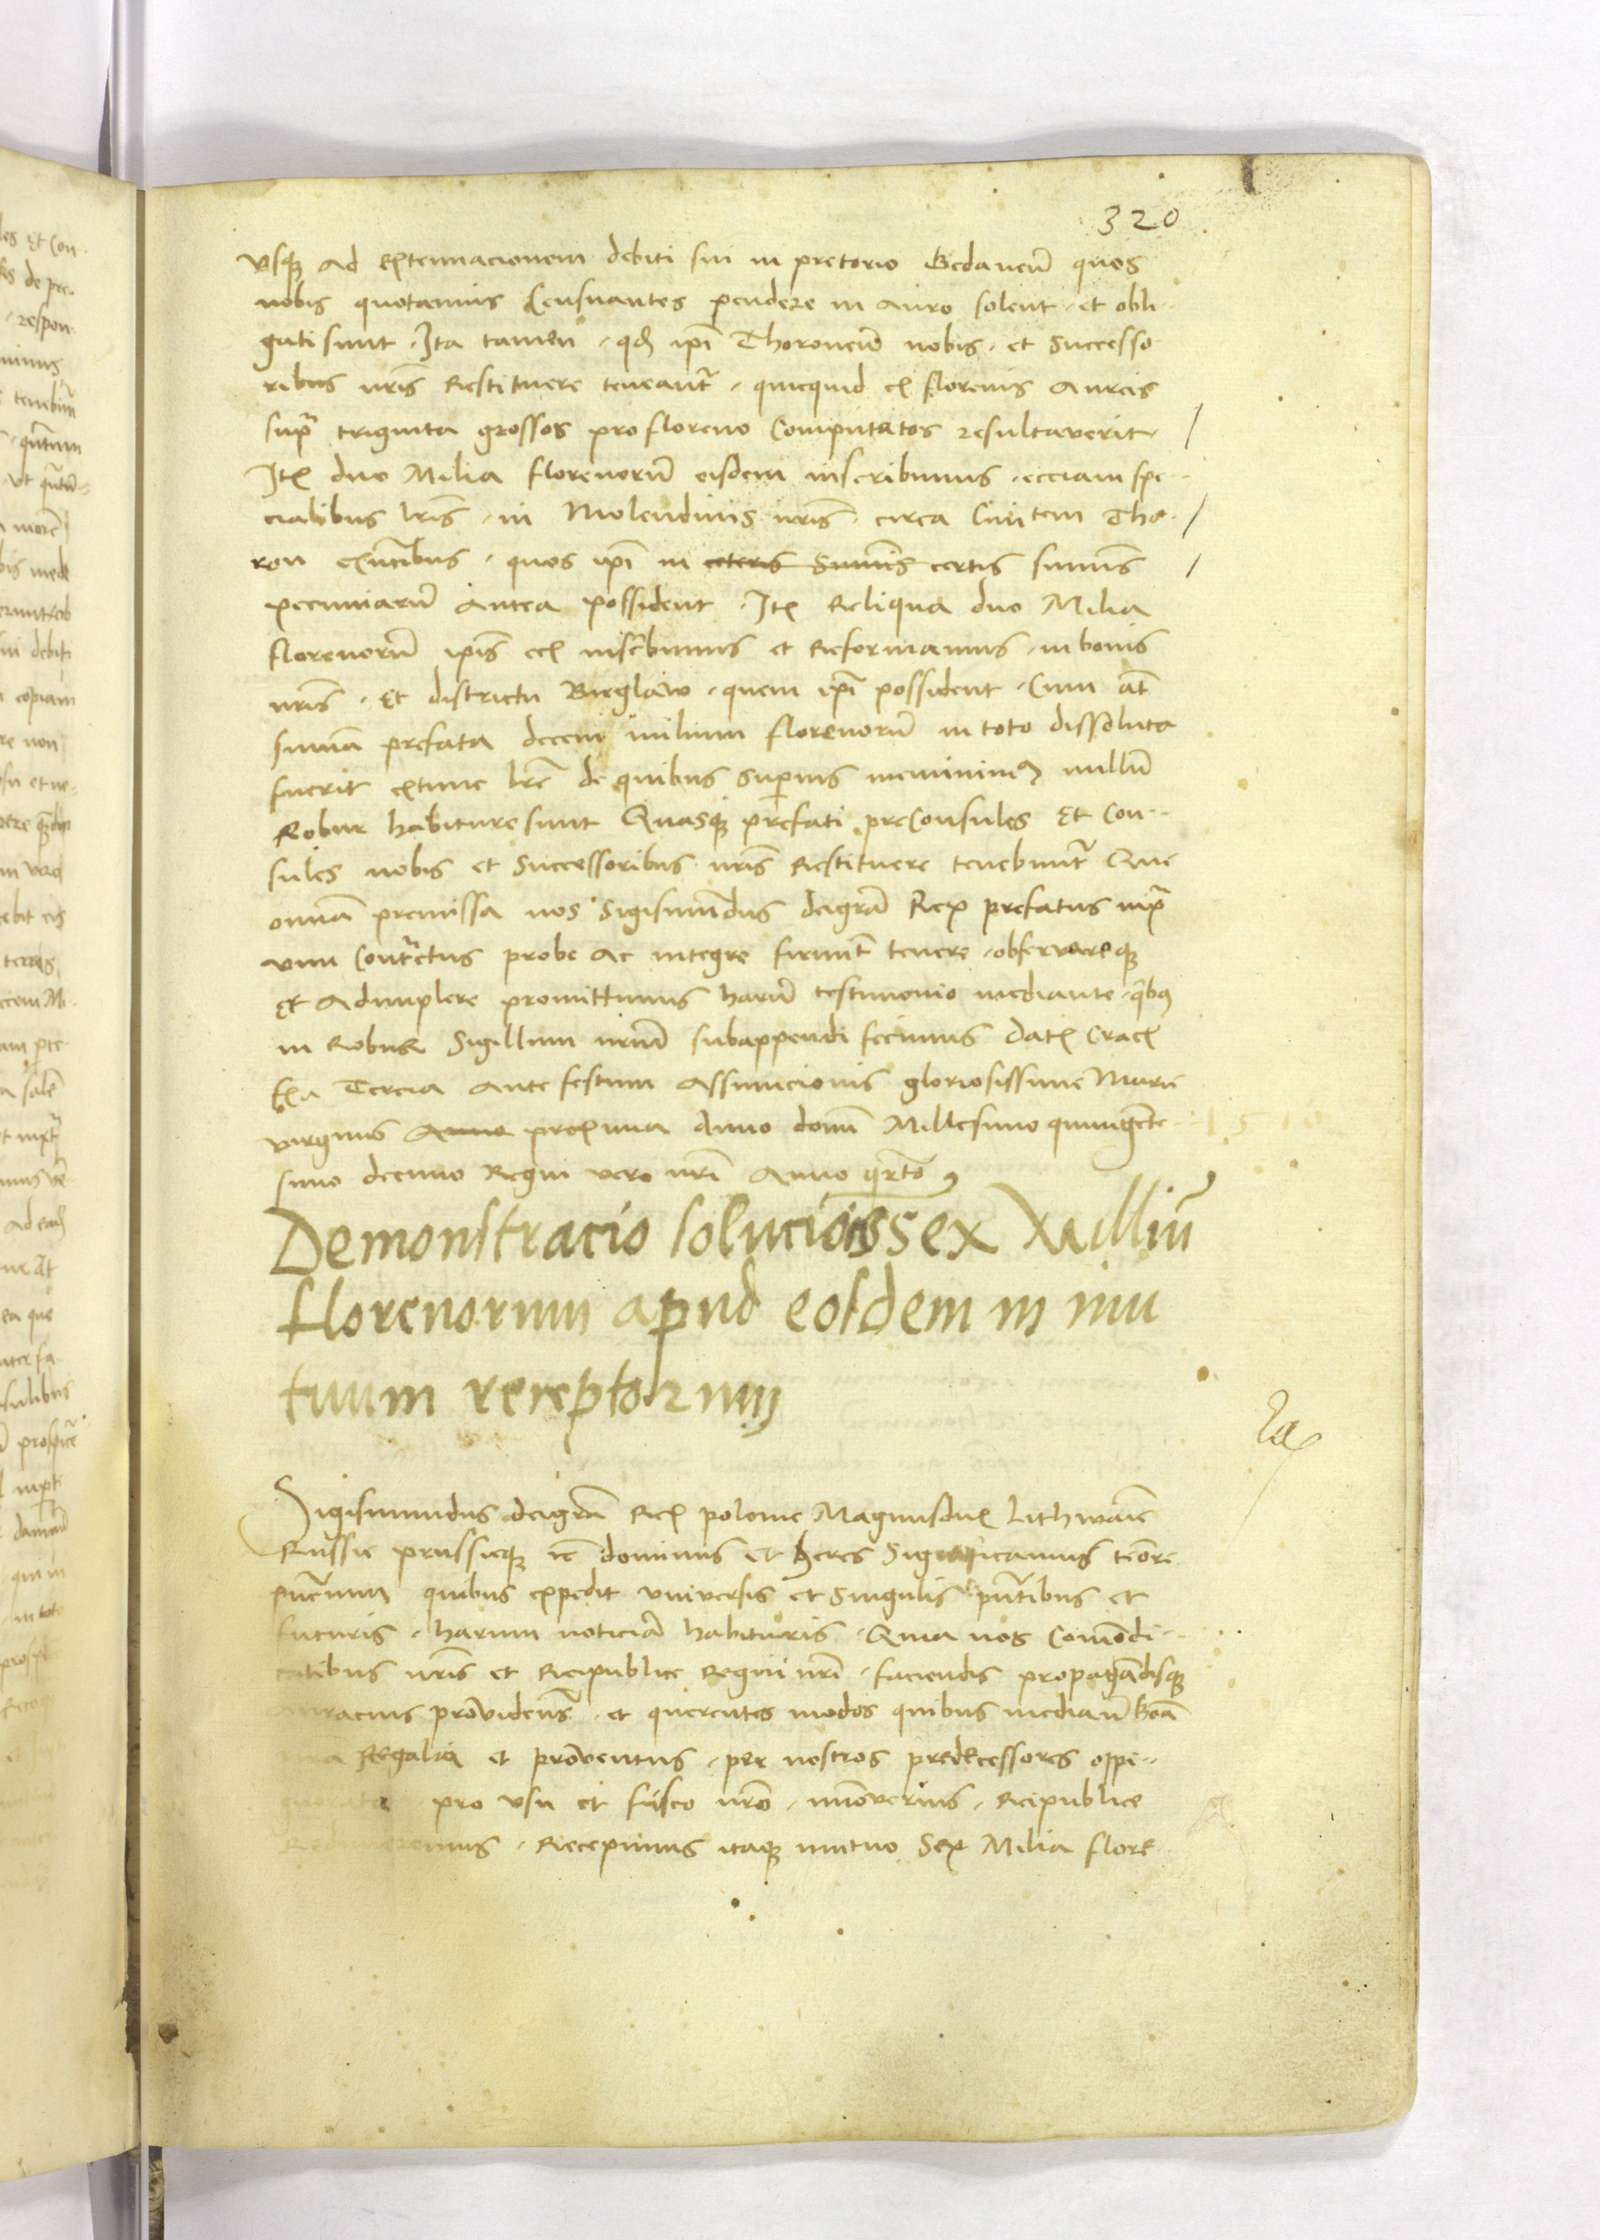 320
Vsq3 ad extenuacionem debiti sui in pretorio Gedaneñ quos
nobis quotannis Censuantes pendere in auro solent · et obli-
gati sunt · Ita tamen · qd ipī Thoroneñ nobis · et Successo
ribus nrīs Restituere teneant᷑ · quicquid ex florenis Aureis
supra triginta grossos pro floreno Computatos resultaverit
Itē duo Milia florenorū eisdem inscribimus · ecciam spe-
cialibus lrīs · in Molendinis nrīs circa Civitem Tho-
ron exn̄tibus · quos ipī in ceteris Summis certis summis
pecuniarū antea possident · Itē Reliqua duo Milia
florenorū ipīs ecī inscribimus et Reformamus · in bonis
nrīs · Et districtu Bieglaw · quem ipī possident · Cum aūt
summā prefata decem milium florenorū in toto dissoluta
fuerit extunc lrē de quibus superius meminim9 nullū
Robur habiture sunt Quasq3 prefati preConsules Et Con-
sules nobis et Successoribus nrīs Restituere tenebunt᷑ Que
omniā premissa nos Sigismūndus deigrā Rex prefatus
Contrctus probe ac integre firmit᷑ tenere · observareq3
Et Adimplere promittimus harū testimonio mediante · qb9
in Robur Sigillum nrūm subappendi fecimus Datē Cracē
fia Tercia ante festum assumcionis gloriosissime Marie
virginis Anno proxima Anno domī Millesimo quingēnte- 1510
simo decimo Regni vero nrī Anno qrto
Demonstracio soluciōis sex Milliū
florenorum apud eosdem in mu
tuum receptorum
Sigismundus deigrā Rex polonie Magnusdux Lithwānie
Russie prussieq3 zc̄ dominus et heres Significamus tenōre
pn̄cium quibus expedit universis et Singulis pn̄tibus et
futuris · harum noticiā habituris · Quia nos Comodi-
tatibus nrīs et Reipublice Regni nrī · faciendis propagādisq3
providens̄ · et querentes modos quibus mediañ Bona
Regalia et proventus · per nostros predecessores oppi-
pro usu et fisco nrō · Reipublice
· Recepimus itaq3 mutuo Sex Milia flore